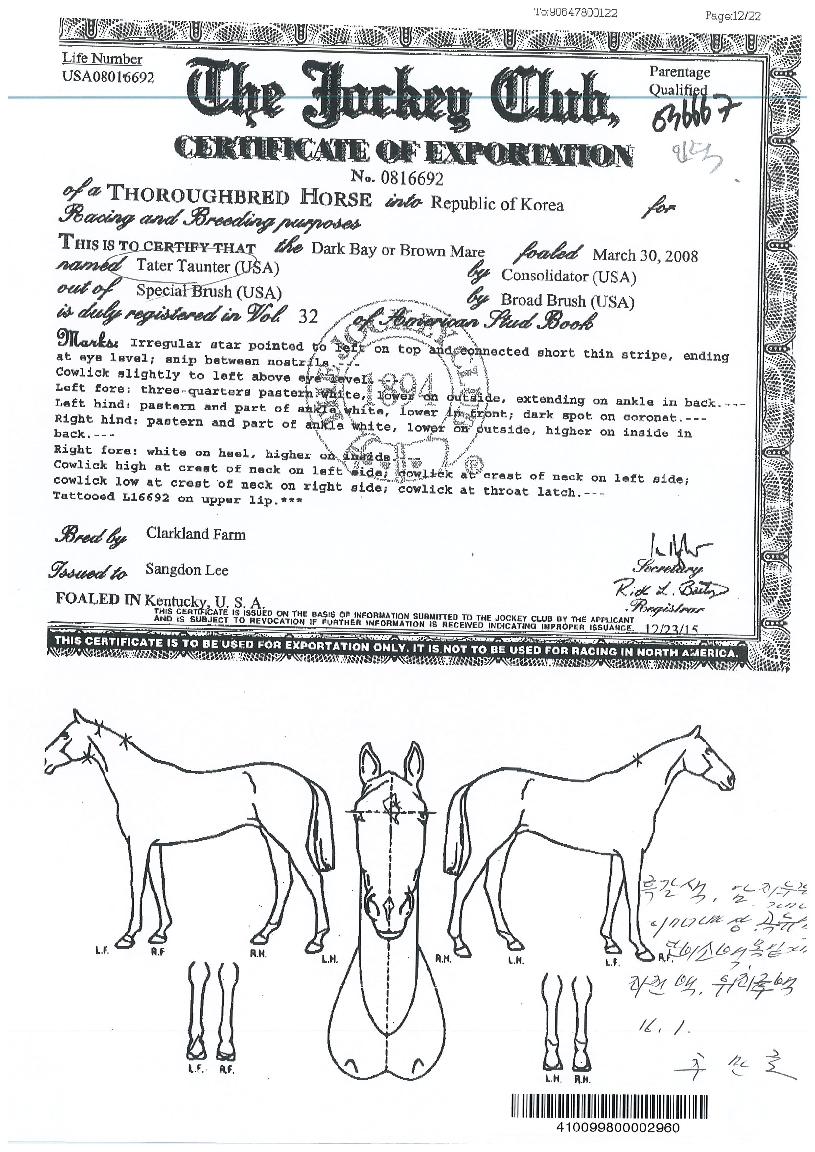 To:90647800122 Page:12/22
Life Number
USA08016692
Parentage
Qualified
The Jockey Club,
CERTIFICATE OF EXPORTATION
No. 0816692
of a THOROUGHBRED HORSE into Republic of Korea for
Racing and Breeding purposes
THIS IS TO CERTIFY THAT the Dark Bay or Brown Mare foaled March 30, 2008
named Tater Taunter (USA) by Consolidator (USA)
out of Special Brush (USA) by Broad Brush (USA)
is duly registered in Vol. 32 of American Stud Book
THE JOCKEY CLUB
1894
®
Marks: Irregular star pointed to left on top and connected short thin stripe, ending
at eye level; snip between nostrils.---
Cowlick slightly to left above eye level.---
Left fore: three-quarters pastern white, lower on outside, extending on ankle in back.---
Left hind: pastern and part of ankle white, lower in front; dark spot on coronet.---
Right hind: pastern and part of ankle white, lower on outside, higher on inside in
back.---
Right fore: white on heel, higher on inside.
Cowlick high at crest of neck on left side; cowlick at crest of neck on left side;
cowlick low at crest of neck on right side; cowlick at throat latch.---
Tattooed L16692 on upper lip.***
Bred by Clarkland Farm
Issued to Sangdon Lee
Secretary
Registrar
FOALED IN Kentucky, U. S. A.
THIS CERTIFICATE IS ISSUED ON THE BASIS OF INFORMATION SUBMITTED TO THE JOCKEY CLUB BY THE APPLICANT
AND IS SUBJECT TO REVOCATION IF FURTHER INFORMATION IS RECEIVED INDICATING IMPROPER ISSUANCE. 12/23/15
THIS CERTIFICATE IS TO BE USED FOR EXPORTATION ONLY. IT IS NOT TO BE USED FOR RACING IN NORTH AMERICA.
L.F. R.F. R.H. L.H. R.H. L.H. L.F. R.F.
흑갈색,
16. 1.
L.F. R.F. L.H. R.H.
410099800002960